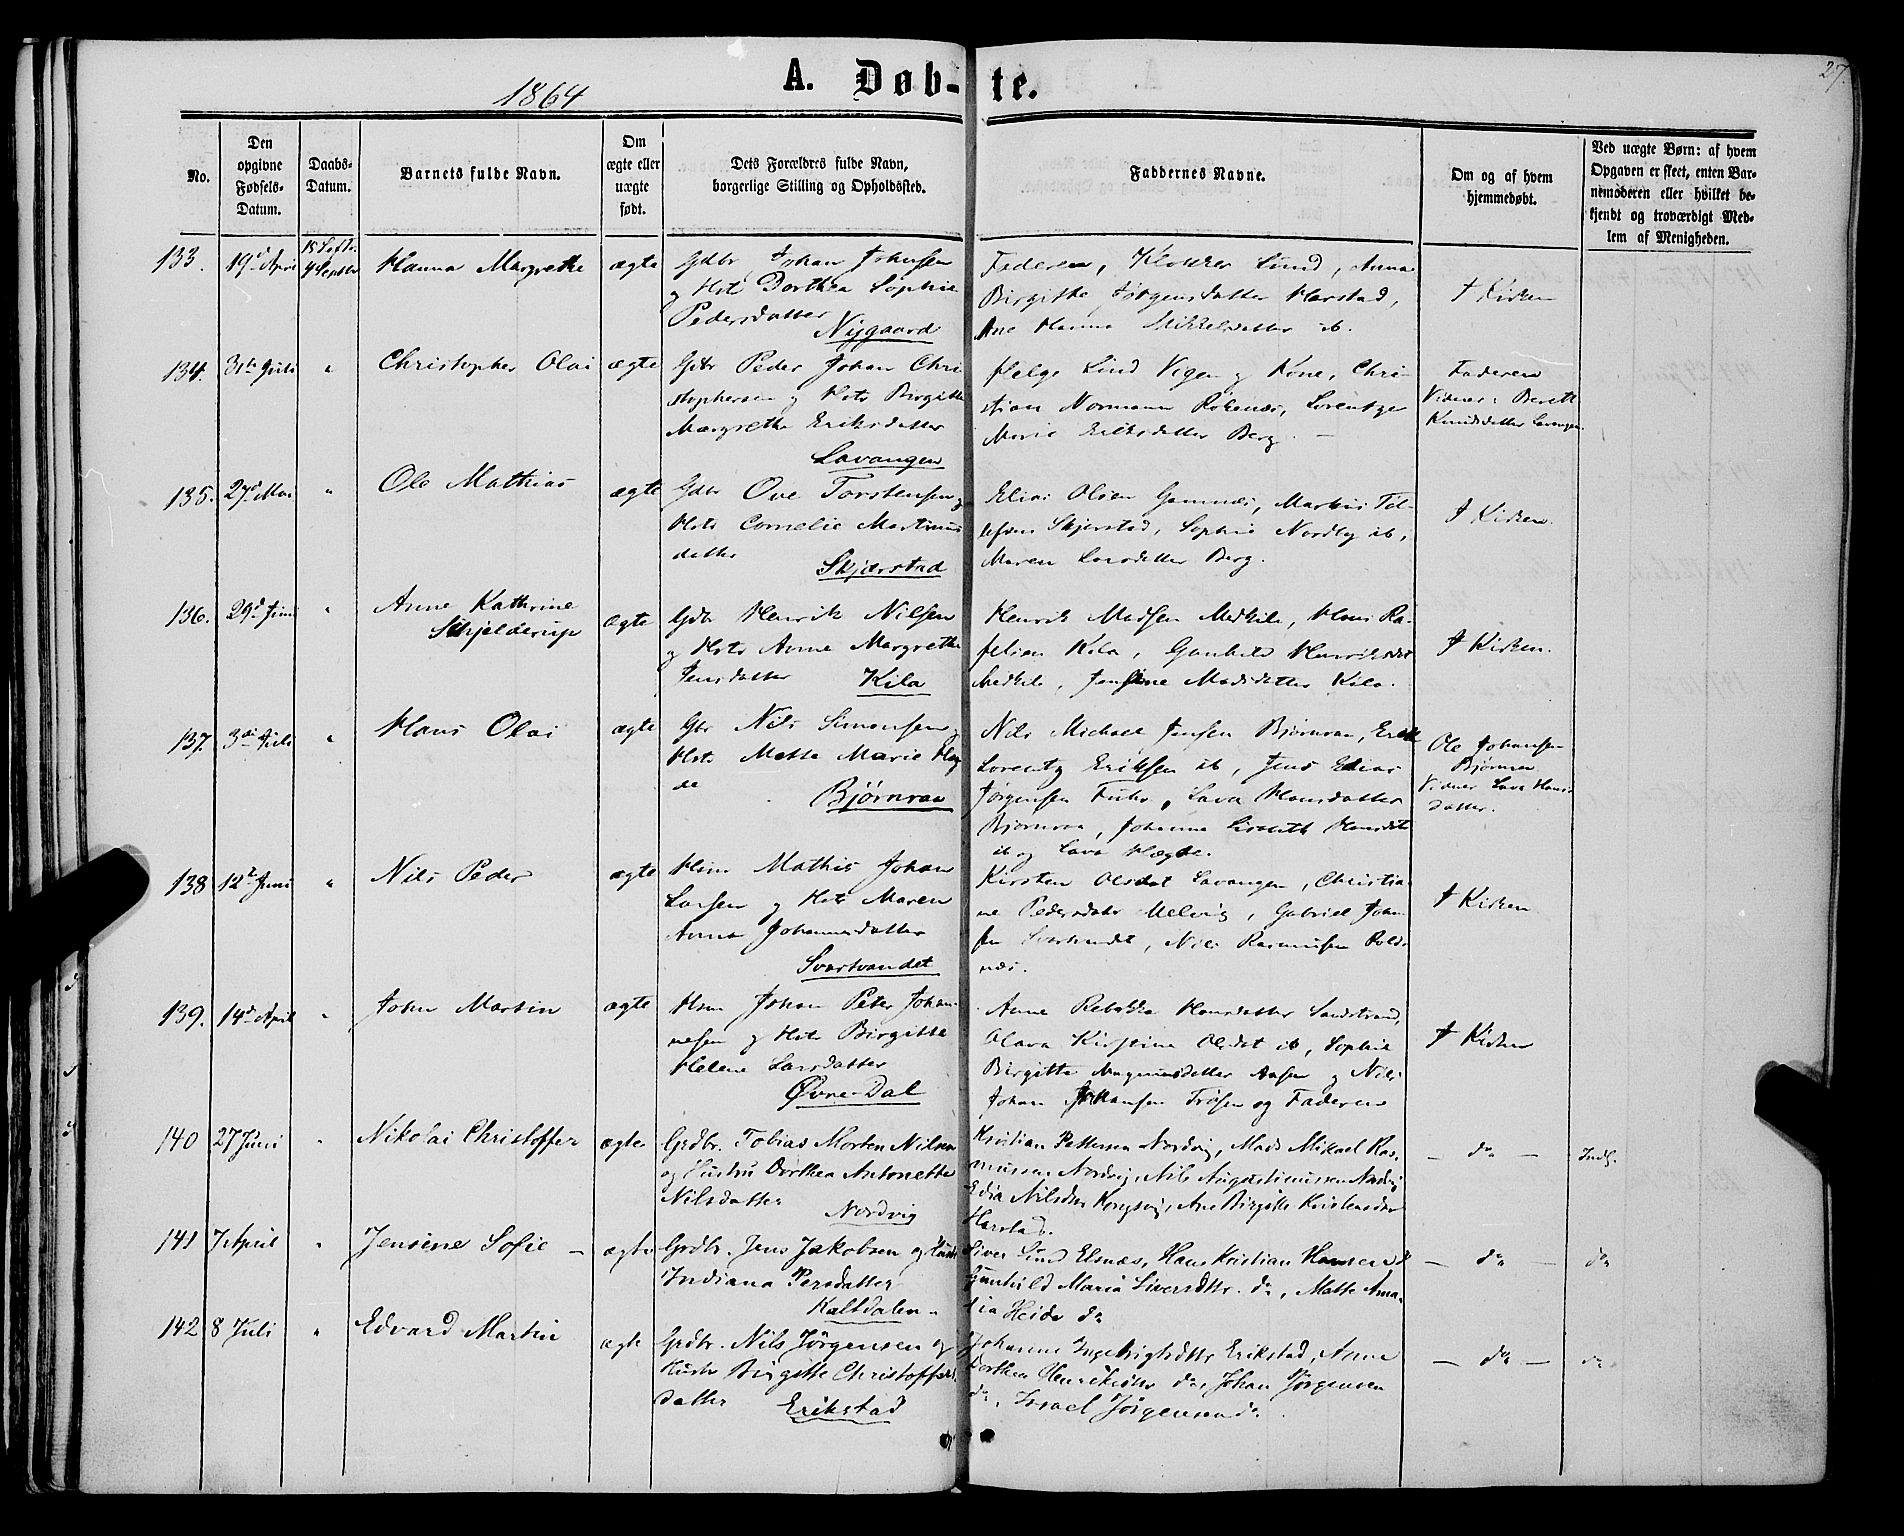 1864
A. Døb-te.
27.
No.
Den opgivne Fødsels-Datum.
Daabs-Datum.
Barnets fulde Navn.
Om ægte eller uægte født.
Dets Forældres fulde Navn, borgerlige Stilling og Opholdssted.
Faddernes Navne.
Om og af hvem hjemmedøbt.
Ved uægte Børn: af hvem Opgaven er skeet, enten Barnemoderen eller hvilket bekjendt og troværdigt Medlem af Menigheden.
133. 19d April 4 Septbr Hanna Margrethe ægte
Gdbr Johan Johnsen
og Hst Dorthea Sophie
Pedersdatter
Nygaard
Faderen, Klokker Lund, Anna
Birgitte Jørgensdatter Harstad,
Ane Hanna Mikkelsdatter ib.
I Kirken
134. 31te Juli " Christopher Olai ægte
Gdbr Peder Johan Chri
stophersen og Hst Birgitte
Margrethe Eriksdatter
Lavangen
Helge Lind Vigen og Kone, Chri-
stian Normann Røkenæs, Lorentze
Marie Eriksdatter Berg. —
Faderen
Vidner: Berett
Knudsdatter Lavangen
135. 27d Mai " Ole Mathias ægte
Gdbr Ove Torstensen og
Hst Cornelie Martinus
datter
Skjærstad
Elias Olsen Gamnæs, Markus Tol-
lefsen Skjærstad, Sophie Nordby ib,
Maren Larsdatter Berg.
I Kirken.
136. 29d Juni " Anne Kathrine
Skjelderup ægte
Gdbr Henrik Nilsen
og Hst Anne Margrethe
Jensdatter Kila
Henrik Madsen Medkile, Hans Ra-
felsen Kila, Gunhild Henriksdat
Medkile, Jensine Madsdatter Kila.
I Kirken.
137. 3die Juli " Hans Olai ægte
Gbr Nils Simonsen og
Hst Mette Marie Heg
de
Bjørnraa
Nils Michael Jensen Bjørnraa, Erik
Lorentz Eriksen ib, Jens Elias
Jørgensen Fuhr, Lava Hansdatter
Bjørnraa, Johanna Lisbeth Hansdat
ib og Lava Hægde.
Ole Johansen
Bjørnraa
Vidner Lava Hans
datter.
138 12te Juni " Nils Peder ægte
Hsm Mathis Johan
Larsen og Hst Maren
Anna Johannesdatter
Svartvandet
Kirsten Olsdat Lavangen, Christia-
ne Pedersdatr Melvig, Gabriel John-
sen Svartvandet, Nils Rasmusen Rolds-
næs.
I Kirken
139. 14d April " John Martin ægte
Hsm Johan Peter Johan-
nesen og Hst Birgitte
Helene Larsdatter
Øvre-Dal
Anne Rebekka Hansdatter Sandstrand,
Olava Kirstine Olsdat ib, Sophie
Birgitte Magnusdatter Aasen og Nils
Johan Johansen Trøsen og Faderen
I Kirken
140 27 Juni " Nikolai Christoffer ægte
Grdbr. Tobias Morten Nilsen
og Hustru Dorthea Antonette
Nilsdatter
Nordvig
Kristian Pettersen Nordvig, Mads Mikael Ras-
mussen Nordvig, Nils Augustinussen Nordvig
Edia Nilsdtr Kongsvig, Ane Birgitte Kristensdtr
Harstad.
— do —
Indf.
141 7 April " Jensine Sofie — ægte
Grdbr. Jens Jakobsen og Hustr
Indiana Persdatter
Kaltdalen
Siver Lund Elsnæs, Hans Kristian Hansen do
Gunhild Maria Siversdttr. do, Mette Ama-
lia Heide do
— do —
do
142 8 Juli " Edvard Martin ægte
Grdbr. Nils Jørgensen og
Hustr Birgitte Christoffers
datter Erikstad
Johanne Ingebrigtsdttr Erikstad, Anne
Dorthea Henriksdttr do, Johan Jørgensen
do, Israel Jørgensen do.
— do —
do